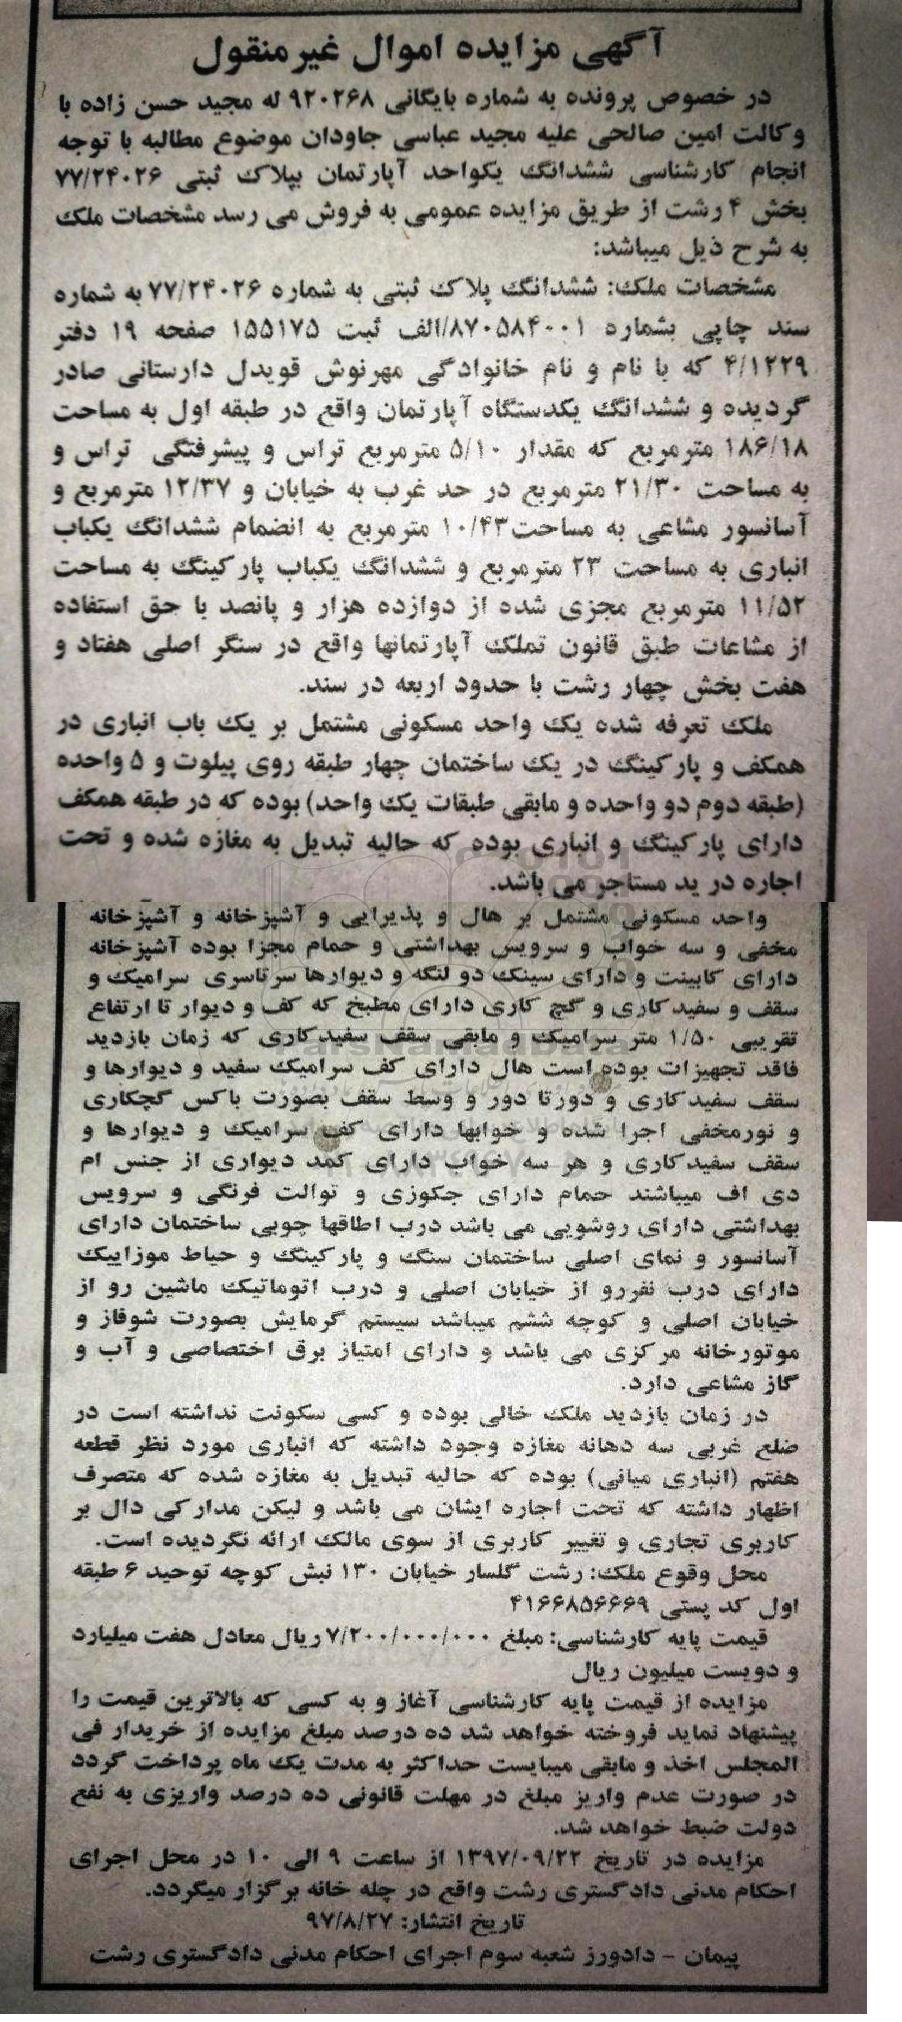 آگهی مزایده اموال غیرمنقول
در خصوص پرونده به شماره بایگانی ۹۲۰۲۶۸ له مجید حسن زاده با
وکالت امین صالحی علیه مجید عباسی جاودان موضوع مطالبه با توجه
انجام کارشناسی ششدانگ یکواحد آپارتمان بپلاک ثبتی ۷۷/۲۴۰۲۶
بخش ۴ رشت از طریق مزایده عمومی به فروش می رسد مشخصات ملک
به شرح ذیل میباشد:
مشخصات ملک: ششدانگ پلاک ثبتی به شماره ۷۷/۲۴۰۲۶ به شماره
سند چاپی بشماره ۸۷۰۵۸۴۰۰۱/الف ثبت ۱۵۵۱۷۵ صفحه ۱۹ دفتر
۴/۱۲۲۹ که با نام و نام خانوادگی مهرنوش قویدل دارستانی صادر
گردیده و ششدانگ یکدستگاه آپارتمان واقع در طبقه اول به مساحت
۱۸۶/۱۸ مترمربع که مقدار ۵/۱۰ مترمربع تراس و پیشرفتگی تراس و
به مساحت ۲۱/۳۰ مترمربع در حد غرب به خیابان و ۱۲/۳۷ مترمربع و
آسانسور مشاعی به مساحت ۱۰/۴۳ مترمربع به انضمام ششدانگ یکباب
انباری به مساحت ۲۳ مترمربع و ششدانگ یکباب پارکینگ به مساحت
۱۱/۵۲ مترمربع مجزی شده از دوازده هزار و پانصد با حق استفاده
از مشاعات طبق قانون تملک آپارتمانها واقع در سنگر اصلی هفتاد و
هفت بخش چهار رشت با حدود اربعه در سند.
ملک تعرفه شده یک واحد مسکونی مشتمل بر یک باب انباری در
همکف و پارکینگ در یک ساختمان چهار طبقه روی پیلوت و ۵ واحده
(طبقه دوم دو واحده و مابقی طبقات یک واحد) بوده که در طبقه همکف
دارای پارکینگ و انباری بوده که حالیه تبدیل به مغازه شده و تحت
اجاره در ید مستاجر می باشد.
واحد مسکونی مشتمل بر هال و پذیرایی و آشپزخانه و آشپزخانه
مخفی و سه خواب و سرویس بهداشتی و حمام مجزا بوده آشپزخانه
دارای کابینت و دارای سینک دو لنگه و دیوارها سرتاسری سرامیک و
سقف و سفیدکاری و گچ کاری دارای مطبخ که کف و دیوار تا ارتفاع
تقریبی ۱/۵۰ متر سرامیک و مابقی سقف سفیدکاری که زمان بازدید
فاقد تجهیزات بوده است هال دارای کف سرامیک سفید و دیوارها و
سقف سفیدکاری و دورتا دور و وسط سقف بصورت باکس گچکاری
و نورمخفی اجرا شده و خوابها دارای کف سرامیک و دیوارها و
سقف سفیدکاری و هر سه خواب دارای کمد دیواری از جنس ام
دی اف میباشند حمام دارای جکوزی و توالت فرنگی و سرویس
بهداشتی دارای روشویی می باشد درب اطاقها چوبی ساختمان دارای
آسانسور و نمای اصلی ساختمان سنگ و پارکینگ و حیاط موزاییک
دارای درب نفررو از خیابان اصلی و درب اتوماتیک ماشین رو از
خیابان اصلی و کوچه ششم میباشد سیستم گرمایش بصورت شوفاز و
موتورخانه مرکزی می باشد و دارای امتیاز برق اختصاصی و آب و
گاز مشاعی دارد.
در زمان بازدید ملک خالی بوده و کسی سکونت نداشته است در
ضلع غربی سه دهانه مغازه وجود داشته که انباری مورد نظر قطعه
هفتم (انباری میانی) بوده که حالیه تبدیل به مغازه شده که متصرف
اظهار داشته که تحت اجاره ایشان می باشد و لیکن مدارکی دال بر
کاربری تجاری و تغییر کاربری از سوی مالک ارائه نگردیده است.
محل وقوع ملک: رشت گلسار خیابان ۱۳۰ نبش کوچه توحید ۶ طبقه
اول کد پستی ۴۱۶۶۸۵۶۶۶۹
قیمت پایه کارشناسی: مبلغ ۷/۲۰۰/۰۰۰/۰۰۰ ریال معادل هفت میلیارد
و دویست میلیون ریال
مزایده از قیمت پایه کارشناسی آغاز و به کسی که بالاترین قیمت را
پیشنهاد نماید فروخته خواهد شد ده درصد مبلغ مزایده از خریدار فی
المجلس اخذ و مابقی میبایست حداکثر به مدت یک ماه پرداخت گردد
در صورت عدم واریز مبلغ در مهلت قانونی ده درصد واریزی به نفع
دولت ضبط خواهد شد.
مزایده در تاریخ ۱۳۹۷/۰۹/۲۲ از ساعت ۹ الی ۱۰ در محل اجرای
احکام مدنی دادگستری رشت واقع در چله خانه برگزار میگردد.
تاریخ انتشار: ۹۷/۸/۲۷
پیمان - دادورز شعبه سوم اجرای احکام مدنی دادگستری رشت